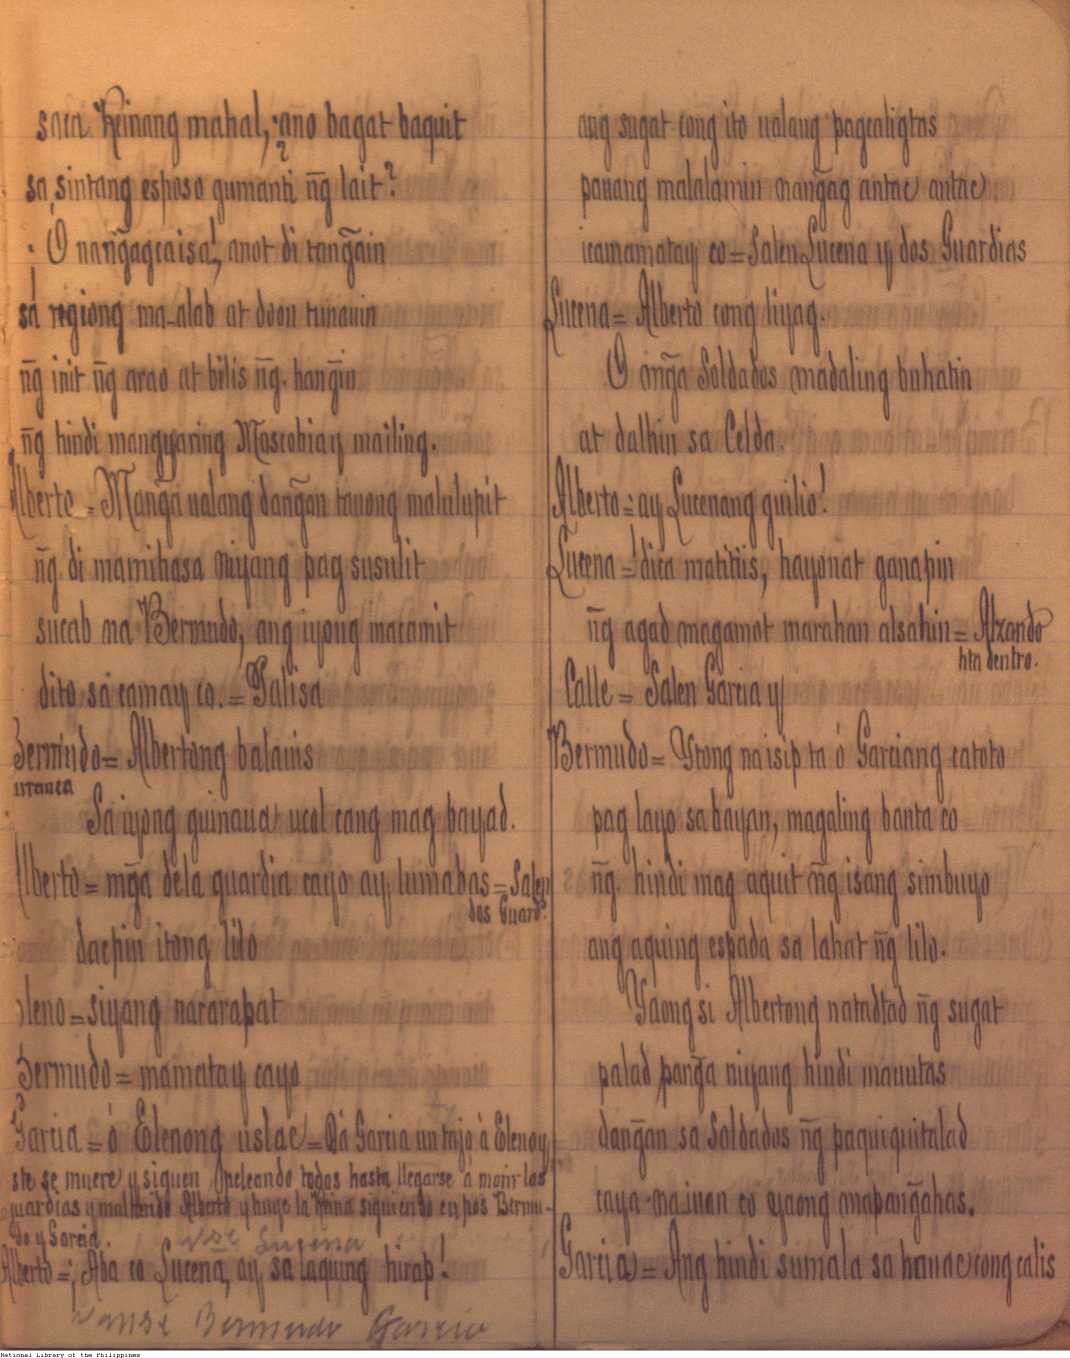 sa ca Reinang mahal, ¿ano bagat baquit
sa sintang esposo gumanti ñg lait?
O nan̄gagcaisa!, anot di tan̄gain
sa regiong ma-alab at doon tunauin
n̄g init n̄g arao at bilis n̄g. han̄gin
n̄g hindi mangyaring Moscobiay mailing.
Alberto = Man̄ga ualang dan̄gan tauong malulupit
n̄g di mamihasa niyang pag susulit
sucab na Bermudo, ang iyong macamit
dito sa camay co. = Palisa
Bermudo = Albertong balauis
Sa iyong guinaua ucol cang mag bayad.
Alberto = m̄ga dela guardia cayo ay lumabas = Salen
dos Guard.
dacpin itong lilo
Eleno = siyang nararapat
Bermudo = mamatay cayo
Garcia = ó Elenong uslac = Dá Garcia un tajo á Eleno y
ste se muere y siguen peleando todos hasta llegarse á morir los
guardias y mal herido Alberto y huye la Reina siguiendo en pos Bermu-
do y Garcia.
Vse Lucena
Alberto = ¡Aba co Lucena, ay sa laquing hirap!
Vanse Bermudo Garcia
ang sugat cong ito ualang pagcaligtas
pauang malalamin nan̄gag antac antac
icamamatay co = Salen Lucena y dos Guardias
Lucena = Alberto cong liyag.
O m̄ga Soldados madaling buhatin
at dalhin sa Celda.
Alberto = ay Lucenang guilio!
Lucena = dica matitiis, hayonat ganapin
n̄g agad magamot marahan alsahin = Alzando
hta dentro.
Calle = Salen Garcia y
Bermudo = Ytong naisip ta ó Garciang catoto
pag layo sa bayan, magaling banta co
n̄g. hindi mag aquit n̄g isang simbuyo
ang aquing espada sa lahat n̄g lilo.
Yaong si Albertong natadtad n̄g sugat
palad pan̄ga niyang hindi mauutas
dan̄gan sa Soldados n̄g paquiquitalad
caya na iuan co yaong mapan̄gahas.
Garcia = Ang hindi sumala sa hanac cong calis
National Library of the Philippines